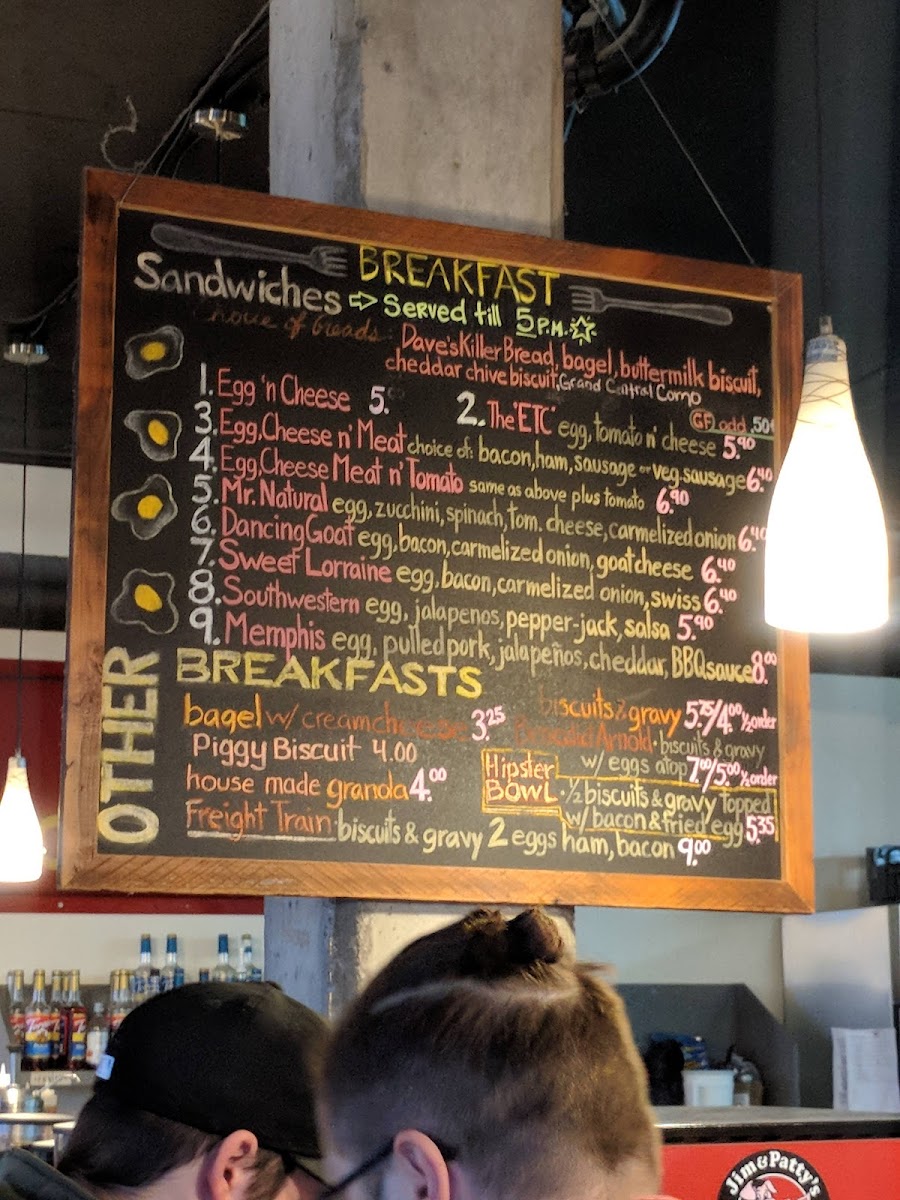 BREAKFAST
Sandwiches ⇨ Served till 5 P.M.
Choice of breads: Dave's Killer Bread, bagel, buttermilk biscuit,
cheddar chive biscuit, Grand Central Como
GF add .50¢
1. Egg 'n Cheese 5.
2. The 'ETC' egg, tomato n' cheese 5.90
3. Egg, Cheese n' Meat choice of: bacon, ham, sausage or veg. sausage 6.40
4. Egg, Cheese Meat n' Tomato same as above plus tomato 6.90
5. Mr. Natural egg, zucchini, spinach, tom. cheese, carmelized onion 6.40
6. Dancing Goat egg, bacon, carmelized onion, goat cheese 6.40
7. Sweet Lorraine egg, bacon, carmelized onion, swiss 6.40
8. Southwestern egg, jalapenos, pepper-jack, salsa 5.90
9. Memphis egg, pulled pork, jalapeños, cheddar, BBQ sauce 8.00
OTHER BREAKFASTS
bagel w/ creamcheese 3.25
Piggy Biscuit 4.00
house made granola 4.00
Freight Train · biscuits & gravy 2 eggs ham, bacon 9.00
biscuits & gravy 5.25/4.00 ½ order
Benedict Arnold · biscuits & gravy
w/ eggs atop 7.00/5.00 ½ order
Hipster BOWL · ½ biscuits & gravy topped
w/ bacon & fried egg 5.35
Jim & Patty's